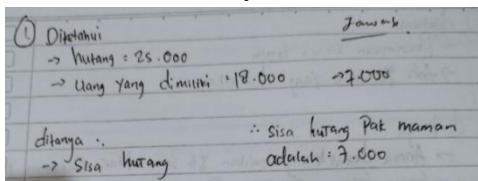 ① Diketahui
→ hutang : 25.000
→ Uang yang dimiliki : 18.000
ditanya :.
→ Sisa hutang
Jawab.
→ 7.000
∴ Sisa hutang Pak maman
adalah : 7.000